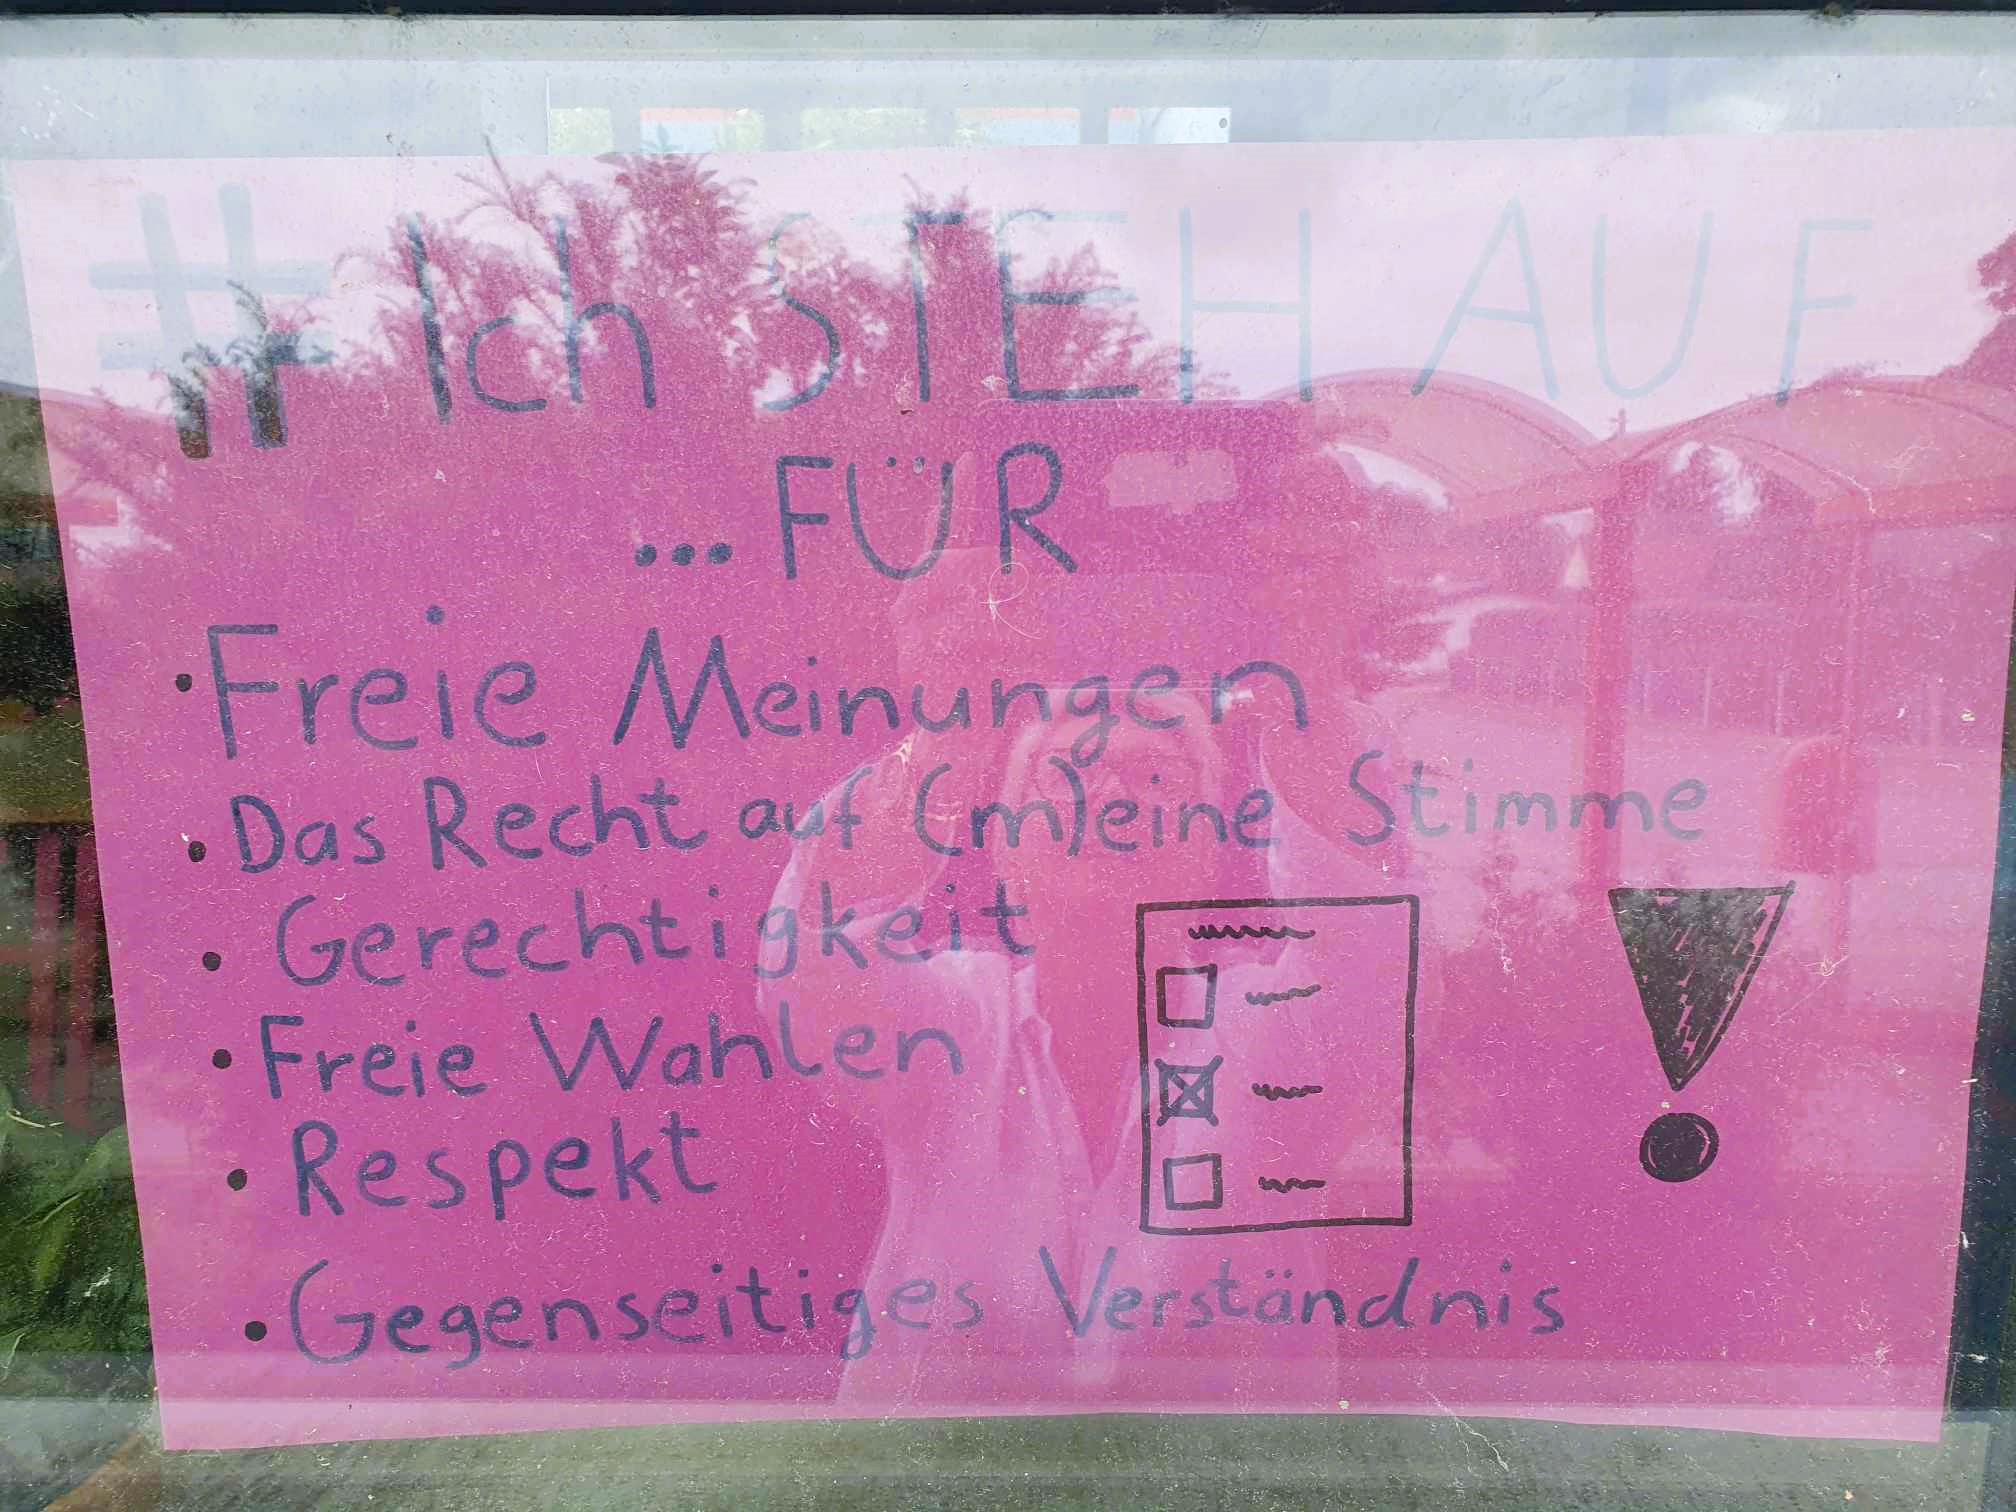 # Ich STEH AUF
... FÜR
• Freie Meinungen
• Das Recht auf (m)eine Stimme
• Gerechtigkeit
• Freie Wahlen
• Respekt
• Gegenseitiges Verständnis